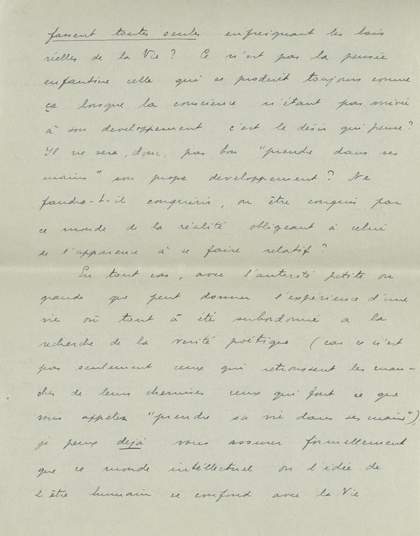 fassent toutes seules enfreignant les lois
réelles de la Vie? Ce n'est pas la pensée
enfantine celle qui se produit toujours comme
ça lorsque la conscience n'étant pas arrivée
à son developpement c'est le désir qui pense?
Il ne sera, donc, pas bon "prendre dans ses
mains" son propre developpement? Ne
faudra-t-il conquérir, ou être conquis par
ce monde de la réalité obligeant à celui
de l'apparence à se faire relatif?
En tout cas, avec l'autorité petite ou
grande que peut donner l'expérience d'une
vie où tout à été subordonné a la
recherche de la verité poétique (car ce n'est
pas seulement ceux qui retroussent les man-
ches de leurs chemises ceux qui font ce que
vous appelez "prendre sa vie dans ses mains")
je peux déjà vous assurer formellement
que ce monde intellectuel où l'idée de
l'être humain se confond avec la Vie